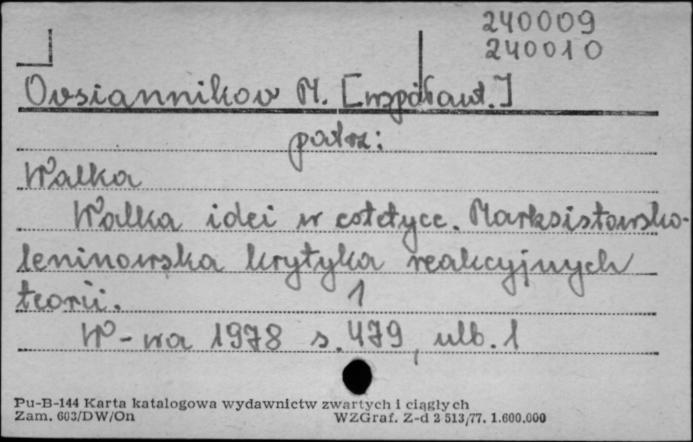 240009
240010
Ovsiannikov M. [współaut.]
patrz:
Walka
Walka idei w estetyce. Marksistowsko-
leninowska krytyka reakcyjnych
teorii. 1
W-wa 1978 s. 479, ulb. 1
Pu-B-144 Karta katalogowa wydawnictw zwartych i ciągłych
Zam. 603/DW/On WZGraf. Z-d 2 513/77. 1.600.000